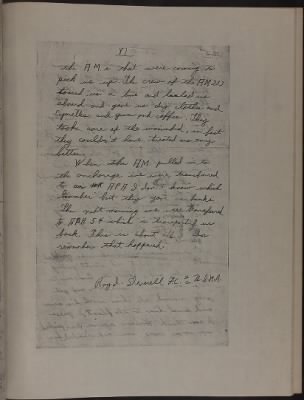 the AM's that were coming to
pick us up. The crew of the AM 213
tossed us a line and hauled us
aboard and gave us dry clothes and
cigarettes and gave out coffee. They
took care of the wounded, in fact
they couldn't have treated us any
better.
When the AM pulled in to
the anchorage we were transferred
to an APA I don't know which
number but they gave us bunks
The next morning we were transferred
to APA 54 which is the taking us
back. This is about all I can
remember that happened.
Roy J.